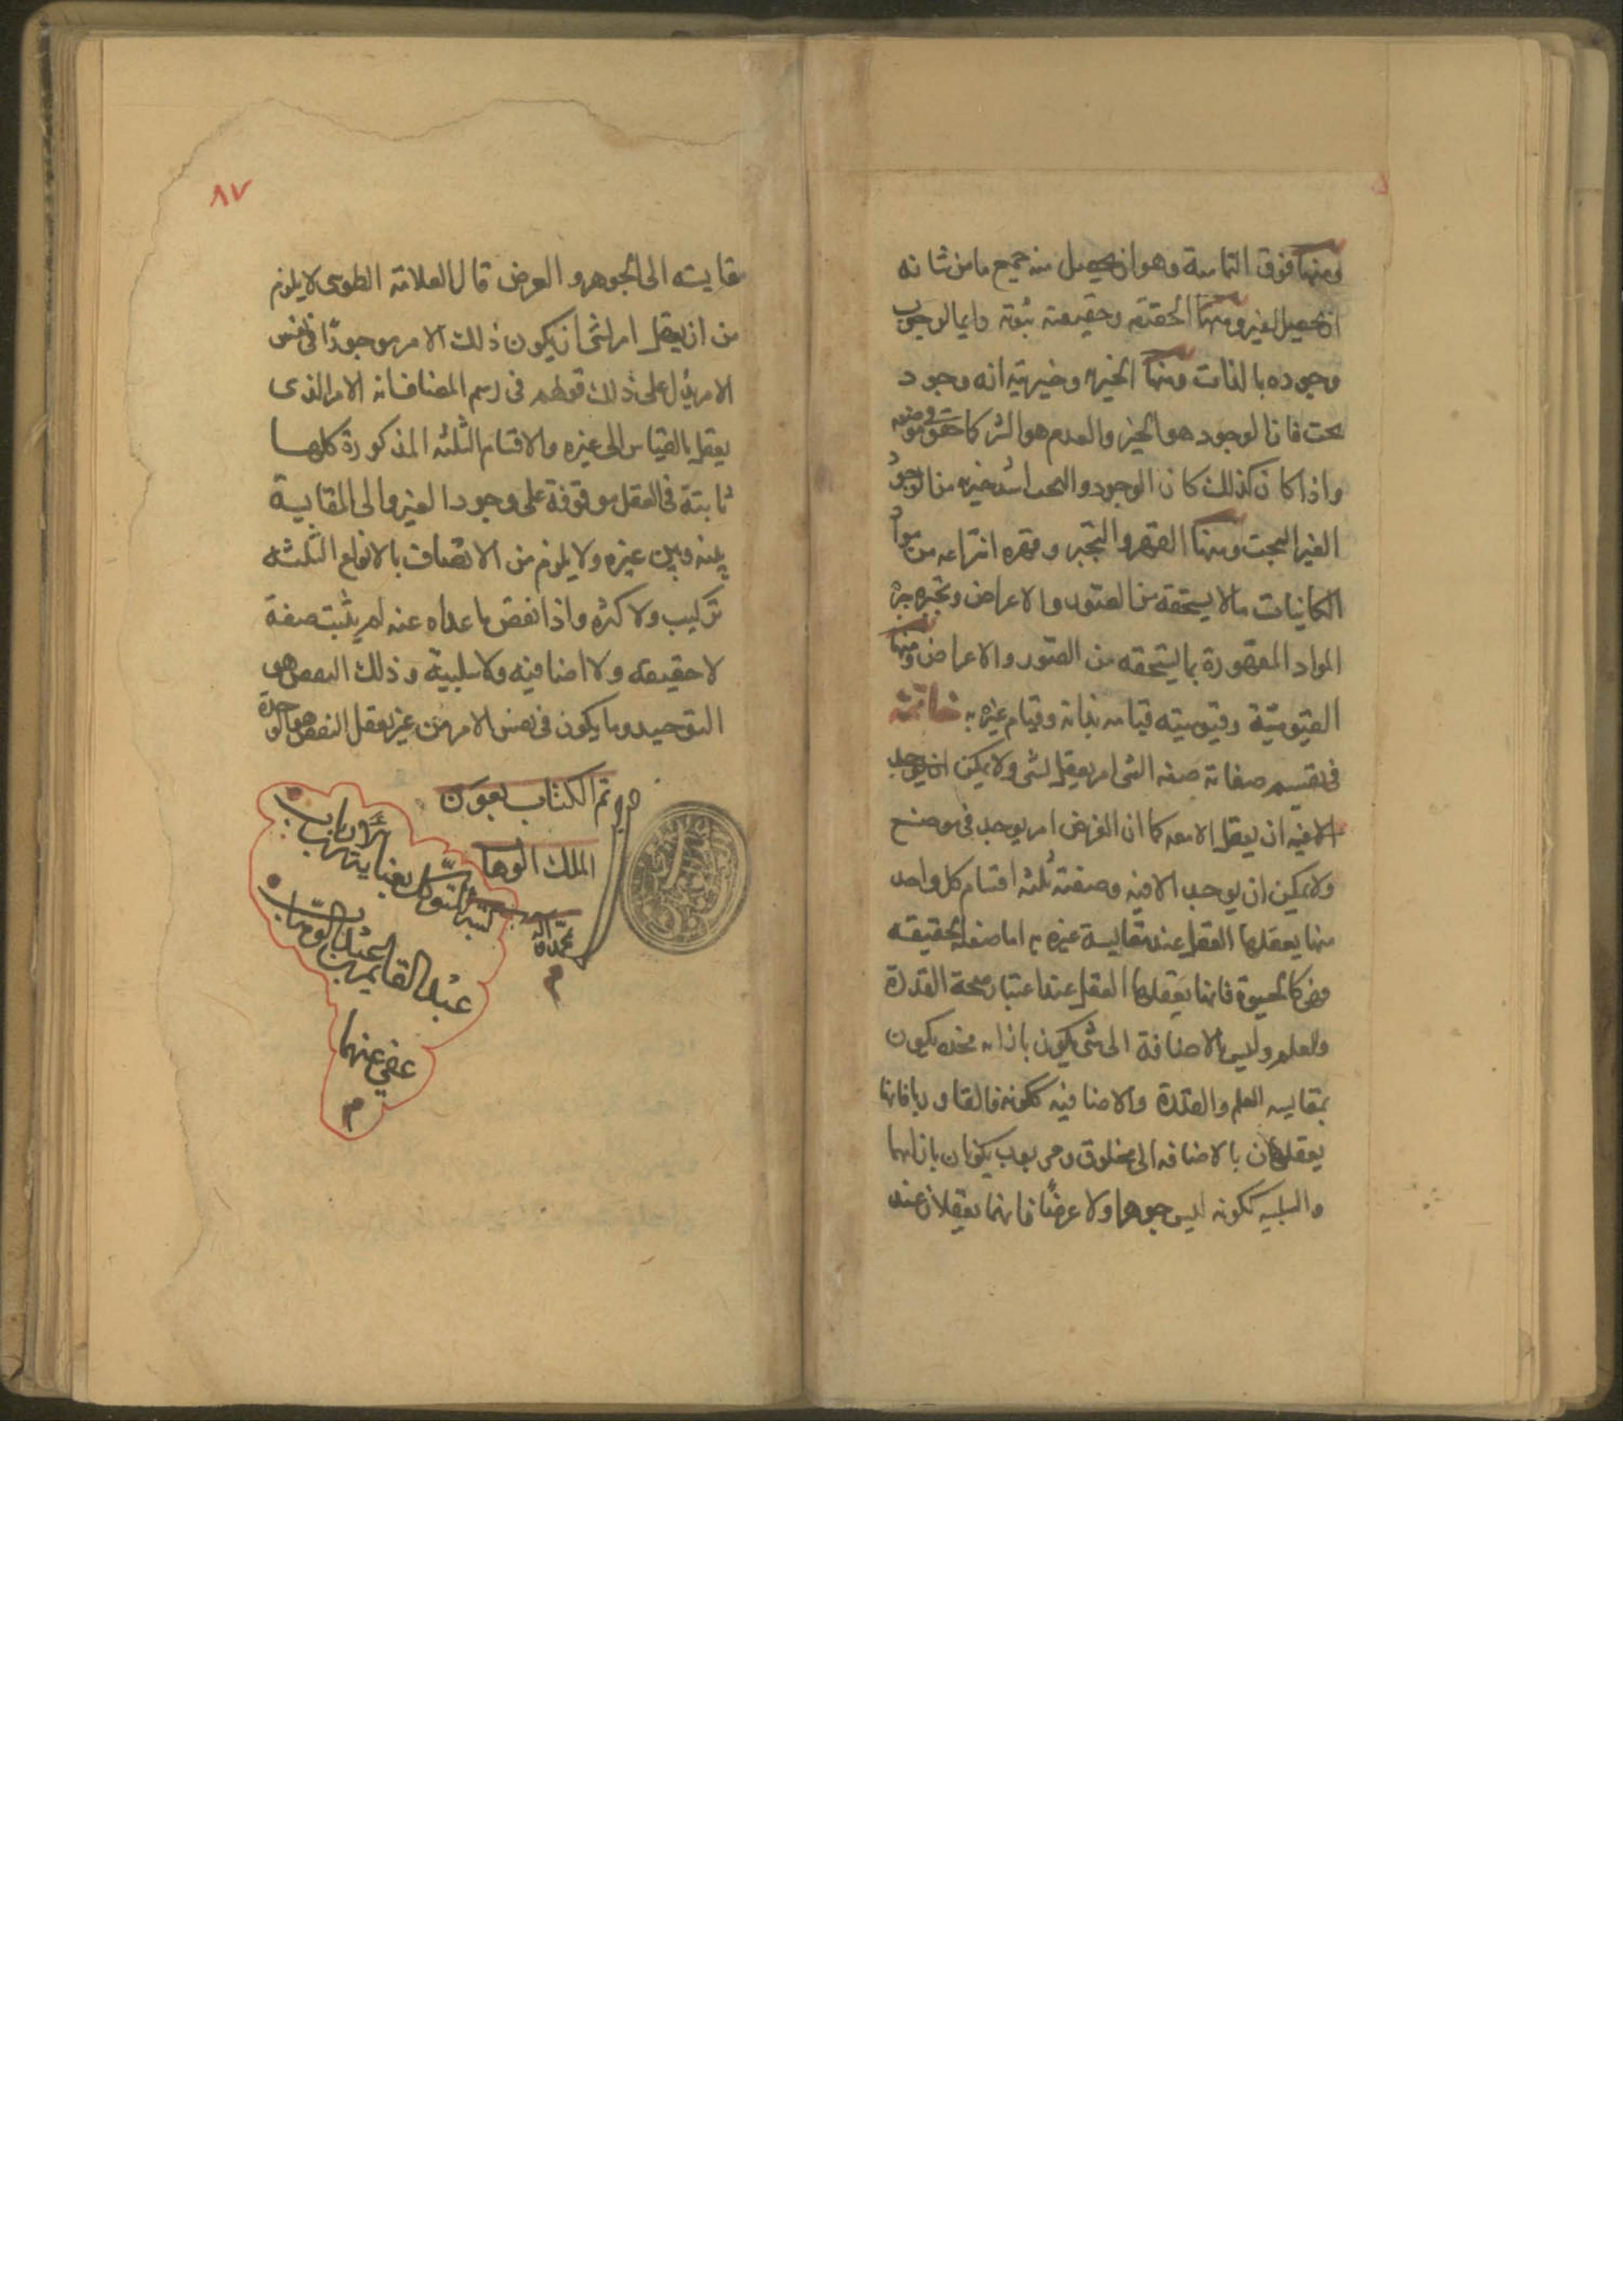 ومنها فوق التمامية وهو ان يحصل منه جميع ما من شانه
ان يحصل لغيره ومنها الحقية وحقيقته ثبوته دايما لوجوب
وجوده بالذات ومنها الخيرية وخيريته انه وجود
بحت فان الوجود هو الخير والعدم هو الشر كما حقق في موضعه
واذا كان كذلك كان الوجود البحت اشد خيرية من الوجود
الغير البحت ومنها القهر والتجبر وقهره انتزاعه من مواد
الكاينات ما لا يستحقه من الصور والاعراض وتجبره جبر
المواد المقهورة بما يستحقه من الصور والاعراض ومنها
القيومية وقيوميته قيامه بذاته وقيام غيره به خاتمة
فى تقسيم صفاته صفة الشى امر يعقل لشى ولا يمكن
ان يعقل الا معه كما ان العرض امر يوجد فى موضع
ولا يمكن ان يوجد الا فيه وصفته ثلثة اقسام كل واحد
منها يعقلها العقل عند مقايسة غيره به اما صفة حقيقة
وهى كالحيوة فانها يعقلها العقل عند اعتبار صحة القدرة
والعلم وليس بالاضافة الى شى يكون بازائه
بمقايسة العلم والقدرة والاضافية ككونه خالقا وربا فانها
يعقلان بالاضافة الى مخلوق ومربوب يكونان بازائهما
والسلبية ككونه ليس جوهرا ولا عرضًا فانهما يعقلان عند
٨٧
مقايسته الى الجوهر و العرض قال العلامة الطوسى لا يلزم
من ان يعقل امر لشى ان يكون ذلك الامر موجودًا فى نفس
الامر يدل على ذلك قولهم فى رسم المضاف انه الامر الذى
يعقل بالقياس الى غيره والاقسام الثلثة المذكورة كلها
ثابتة فى العقل موقوفة على وجود الغير والى المقايسة
بينه وبين غيره ولا يلزم من الاتصاف بالانواع الثلثة
تركيب ولا كثرة واذا نفض ما عداه عنه لم يثبت صفة
لا حقيقة ولا اضافية ولا سلبية وذلك النفض هو
التوحيد وما يكون فى نفس الامر من غير تعقل النفض هو الوحدة
تم الكتاب بعون
الملك الوهاب
كتبه المتوكل بعناية رب الارباب
عبد القايم بن عبد الوهاب
عفى عنهما
م